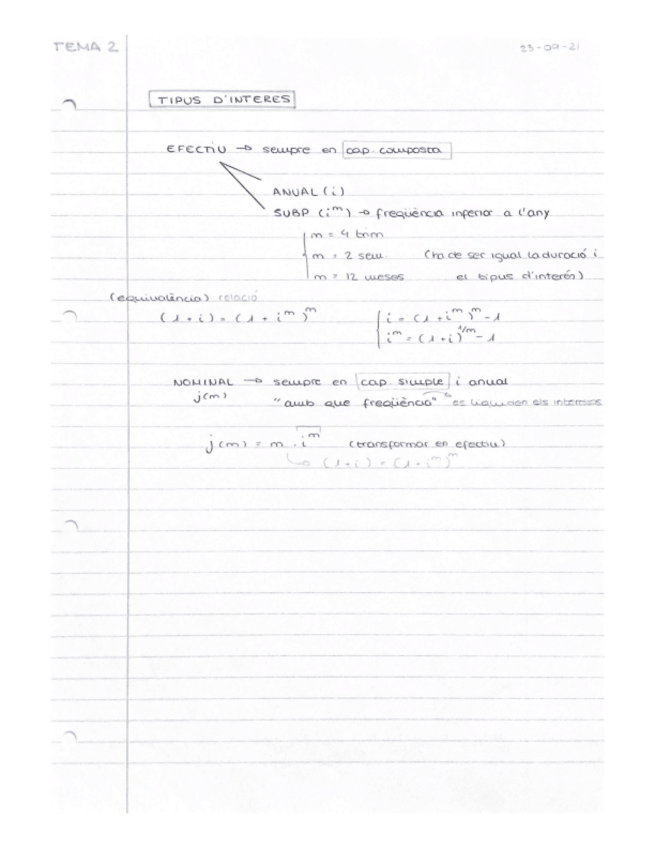 TEMA 2
23-09-21
TIPUS D'INTERES
EFECTIU → sempre en cap. composta
ANUAL (i)
SUBP (i^m) → freqüència inferior a l'any
m = 4 trim
m = 2 sem (ha de ser igual la duració i
m = 12 meses el tipus d'interés)
(equivalència) relació
(1+i) = (1+i^m)^m
i = (1+i^m)^m - 1
i^m = (1+i)^1/m - 1
NOMINAL → sempre en cap. simple i anual
j(m) "amb que freqüència" es liquiden els interessos
j(m) = m · i^m (transformar en efectiu)
↳ (1+i) = (1+i^m)^m